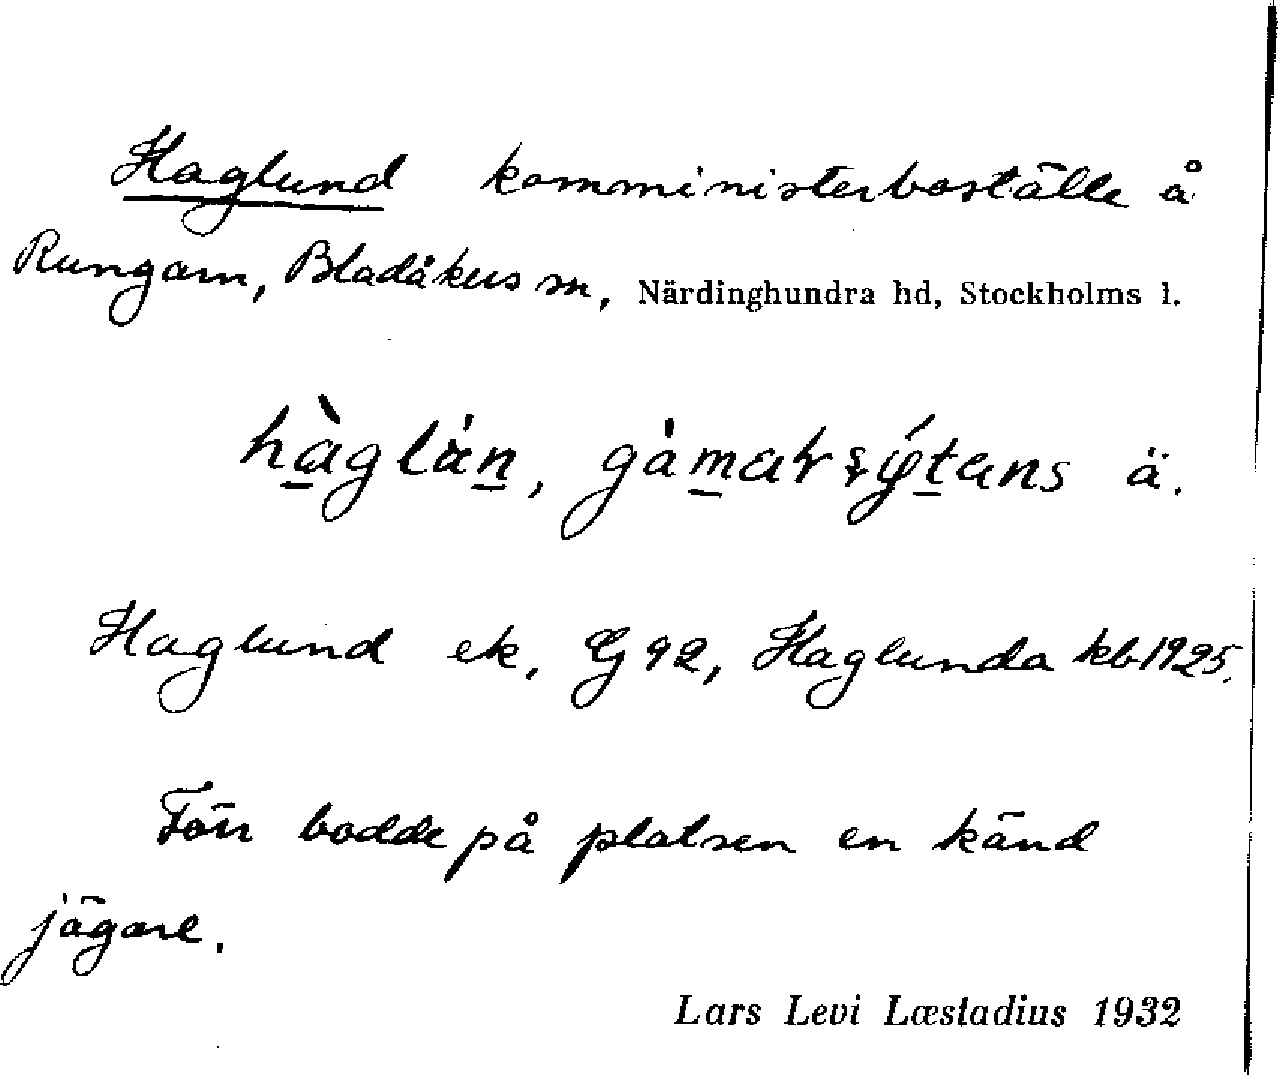 Haglund komministerboställe å
Rungarn, Bladåkers sn, Närdinghundra hd, Stockholms l.
hàglån, ä.
Haglund ek, G 92, Haglunda kb 1925.
Förr bodde på platsen en känd
jägare.
Lars Levi Læstadius 1932